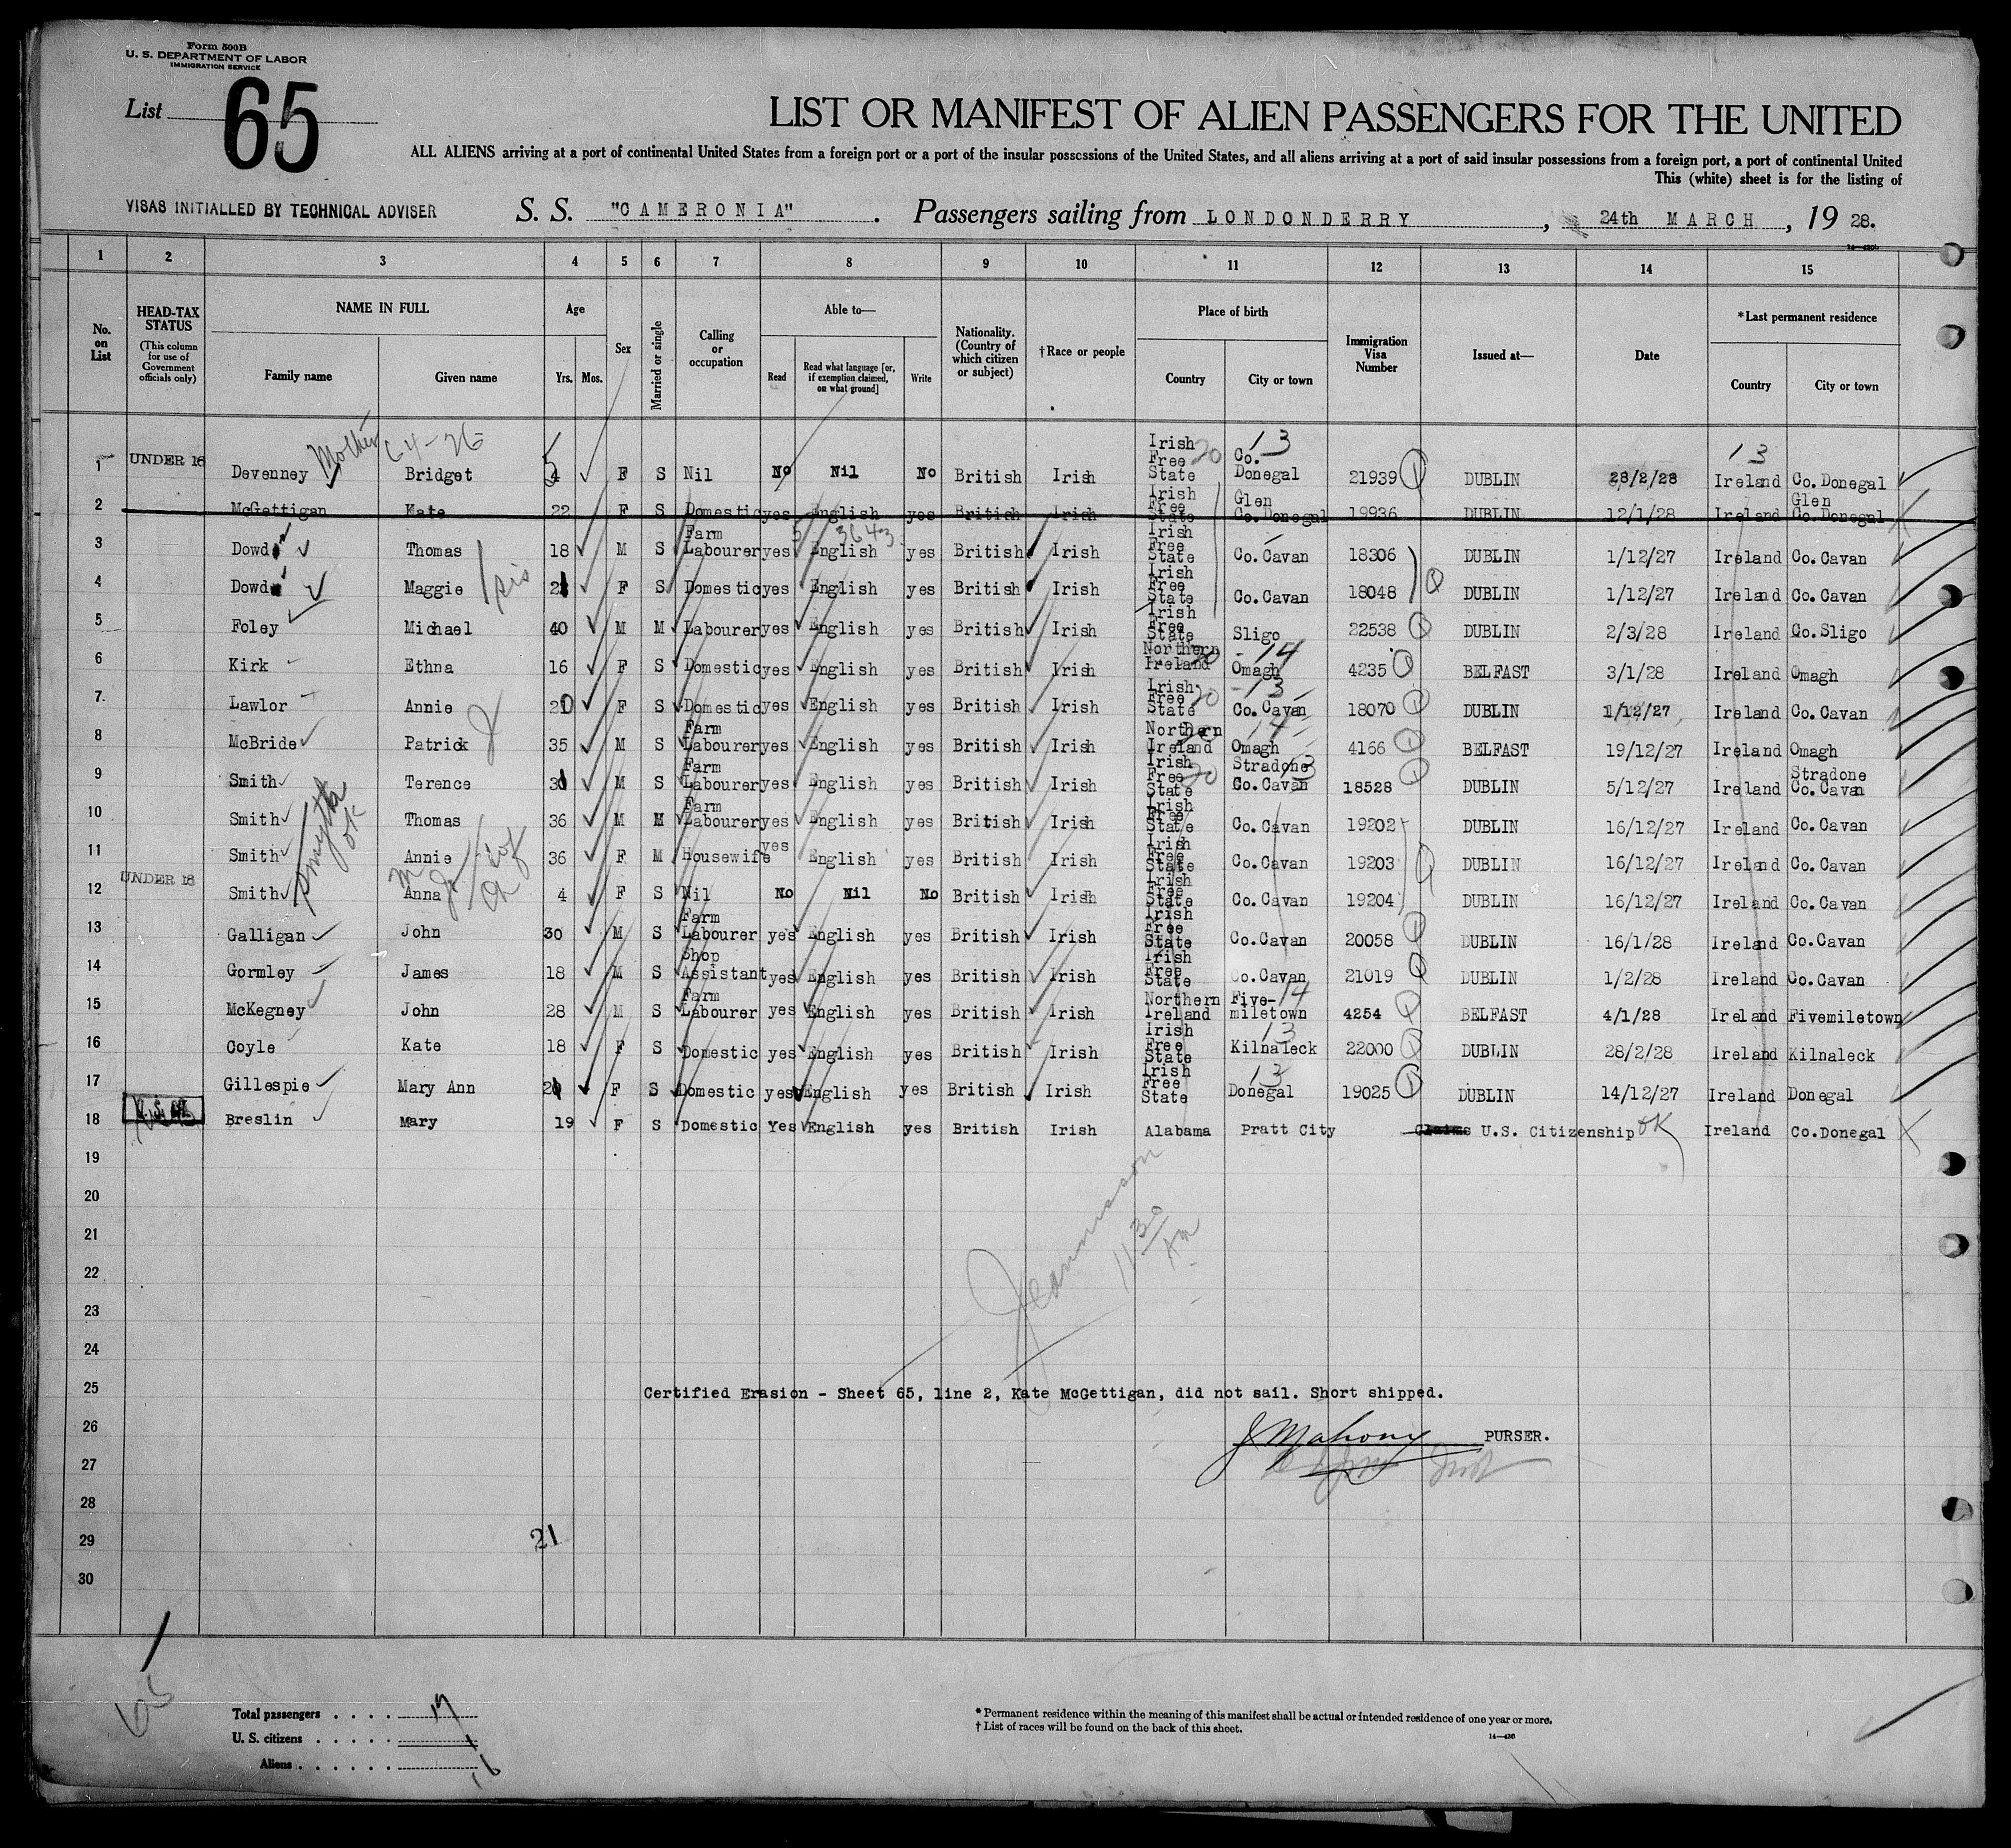 Form 500B
U. S. DEPARTMENT OF LABOR
IMMIGRATION SERVICE
List 65
LIST OR MANIFEST OF ALIEN PASSENGERS FOR THE UNITED
ALL ALIENS arriving at a port of continental United States from a foreign port or a port of the insular possessions of the United States, and all aliens arriving at a port of said insular possessions from a foreign port, a port of continental United
This (white) sheet is for the listing of
VISAS INITIALLED BY TECHNICAL ADVISER S. S. "CAMERONIA". Passengers sailing from LONDONDERRY, 24th MARCH, 19 28.
1 2 3 4 5 6 7 8 9 10 11 12 13 14 15
No. on List HEAD-TAX STATUS (This column for use of Government officials only) NAME IN FULL Family name Given name Age Yrs. Mos. Sex Married or single Calling or occupation Able to— Read Read what language [or, if exemption claimed, on what ground] Write Nationality. (Country of which citizen or subject) †Race or people Place of birth Country City or town Immigration Visa Number Issued at— Date *Last permanent residence Country City or town
1 UNDER 16 Devenney Mother Bridget 4 F S Nil No Nil No British Irish Irish Free State Co. Donegal 21939 DUBLIN 28/2/28 Ireland Co.Donegal
2 McGettigan Kate 22 F S Domestic yes English yes British Irish Irish Free State Glen Co.Donegal 19936 DUBLIN 12/1/28 Ireland Glen Co.Donegal
3 Dowd Thomas 18 M S Farm Labourer yes English yes British Irish Irish Free State Co.Cavan 18306 DUBLIN 1/12/27 Ireland Co.Cavan
4 Dowd Maggie sis F S Domestic yes English yes British Irish Irish Free State Co.Cavan 18048 DUBLIN 1/12/27 Ireland Co.Cavan
5 Foley Michael 40 M M Labourer yes English yes British Irish Irish Free State Sligo 22538 DUBLIN 2/3/28 Ireland Co.Sligo
6 Kirk Ethna 16 F S Domestic yes English yes British Irish Northern Ireland Omagh 4235 BELFAST 3/1/28 Ireland Omagh
7 Lawlor Annie F S Domestic yes English yes British Irish Irish Free State Co.Cavan 18070 DUBLIN 1/12/27 Ireland Co.Cavan
8 McBride Patrick 35 M S Farm Labourer yes English yes British Irish Northern Ireland Omagh 4166 BELFAST 19/12/27 Ireland Omagh
9 Smith Terence M S Farm Labourer yes English yes British Irish Irish Free State Stradone Co.Cavan 18528 DUBLIN 5/12/27 Ireland Stradone Co.Cavan
10 Smith Smyth OK Thomas 36 M M Farm Labourer yes English yes British Irish Irish Free State Co.Cavan 19202 DUBLIN 16/12/27 Ireland Co.Cavan
11 Smith Annie 36 F M Housewife yes English yes British Irish Irish Free State Co.Cavan 19203 DUBLIN 16/12/27 Ireland Co.Cavan
12 UNDER 18 Smith Anna 4 F S Nil No Nil No British Irish Irish Free State Co.Cavan 19204 DUBLIN 16/12/27 Ireland Co.Cavan
13 Galligan John 30 M S Farm Labourer yes English yes British Irish Irish Free State Co.Cavan 20058 DUBLIN 16/1/28 Ireland Co.Cavan
14 Gormley James 18 M S Shop Assistant yes English yes British Irish Irish Free State Co.Cavan 21019 DUBLIN 1/2/28 Ireland Co.Cavan
15 McKegney John 28 M S Farm Labourer yes English yes British Irish Northern Ireland Five-miletown 4254 BELFAST 4/1/28 Ireland Fivemiletown
16 Coyle Kate 18 F S Domestic yes English yes British Irish Irish Free State Kilnaleck 22000 DUBLIN 28/2/28 Ireland Kilnaleck
17 Gillespie Mary Ann F S Domestic yes English yes British Irish Irish Free State Donegal 19025 DUBLIN 14/12/27 Ireland Donegal
18 Breslin Mary 19 F S Domestic Yes English yes British Irish Alabama Pratt City Claims U.S. Citizenship OK Ireland Co.Donegal
19
20
21
22
23
24
25 Certified Erasion - Sheet 65, line 2, Kate McGettigan, did not sail. Short shipped.
26 J Mahony PURSER.
27
28
29 21
30
Total passengers . . . . 17
U. S. citizens . . . . . 1
Aliens . . . . . . 16
* Permanent residence within the meaning of this manifest shall be actual or intended residence of one year or more.
† List of races will be found on the back of this sheet.
14—430